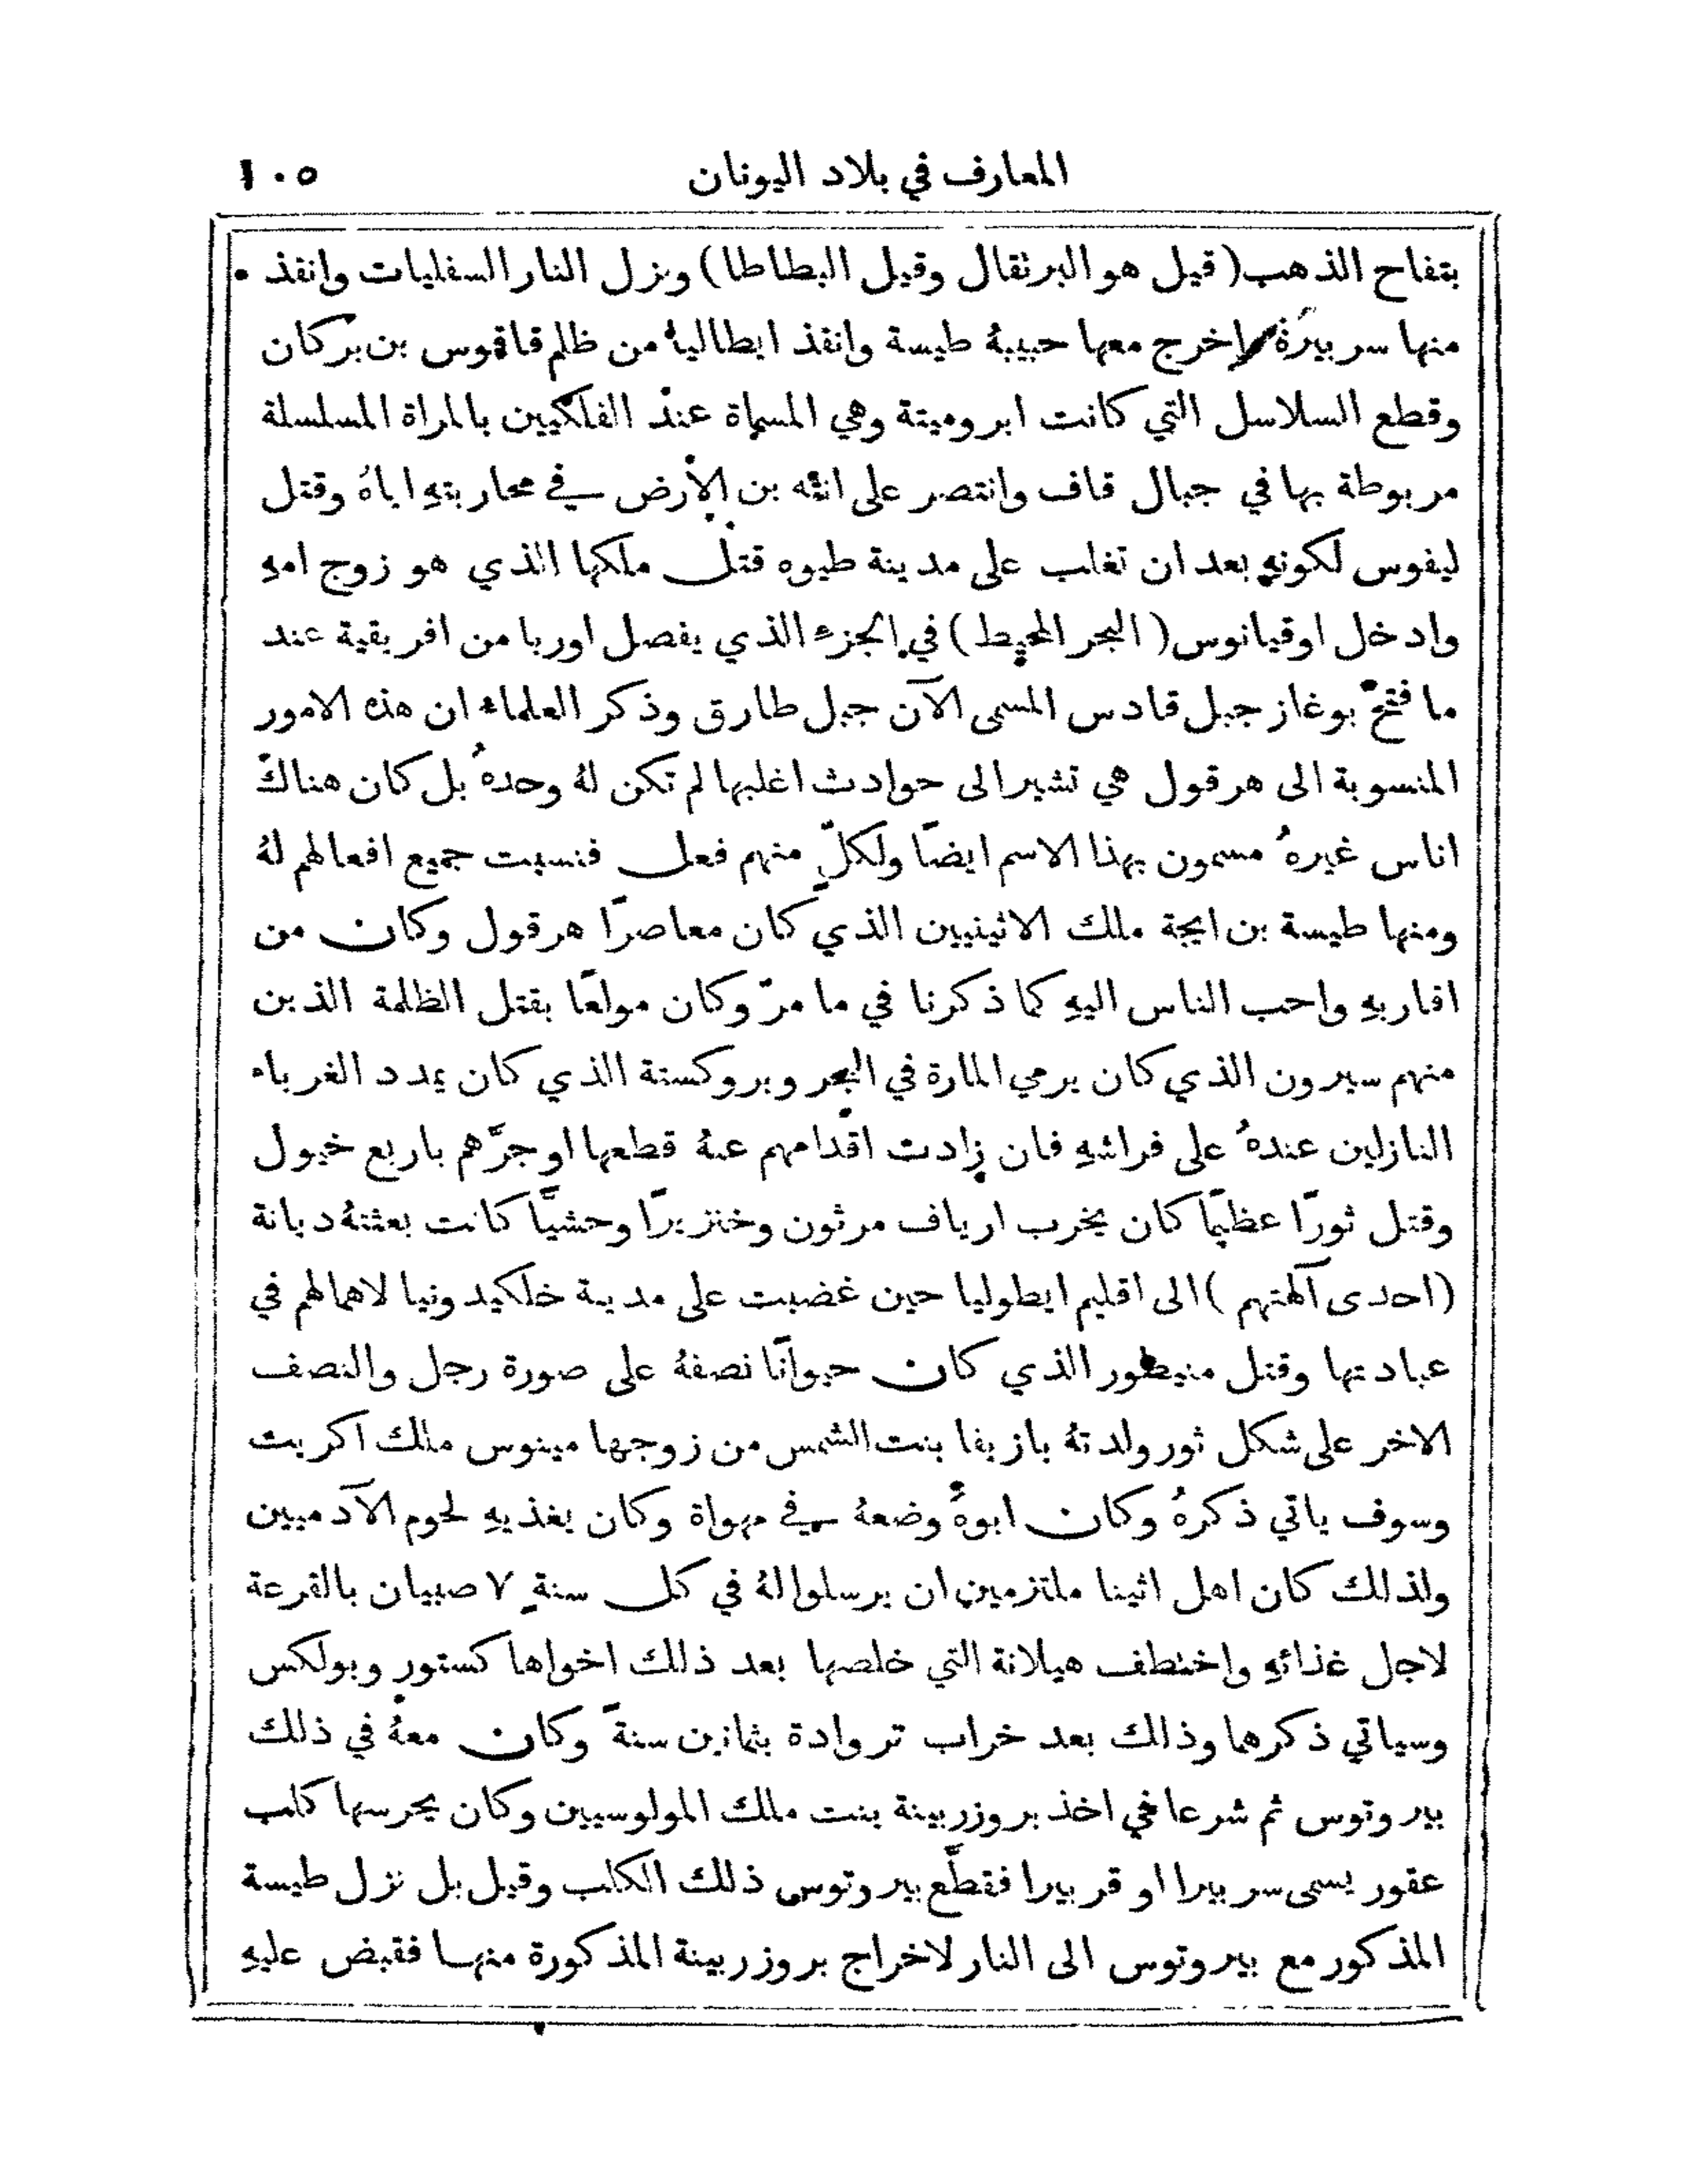 المعارف في بلاد اليونان ١٠٥
بتفاح الذهب (قيل هو البرتقال وقيل البطاطا) ونزل النار السفليات وانقذ
منها سربيرة واخرج معها حبيبهُ طيسة وانقذ ايطاليا من ظلم قاقوس بن بركان
وقطع السلاسل التي كانت ابروميتة وهي المسماة عند الفلكيين بالمراة المسلسلة
مربوطة بها في جبال قاف وانتصر على انته بن الارض في محاربتهِ اياهُ وقتل
ليفوس لكونهِ بعد ان تغلب على مدينة طيوه قتل ملكها الذي هو زوج امهِ
وادخل اوقيانوس (البحر المحيط) في الجزء الذي يفصل اوربا من افريقية عند
ما فتح بوغاز جبل قادس المسمى الآن جبل طارق وذكر العلماء ان هذه الامور
المنسوبة الى هرقول هي تشير الى حوادث اغلبها لم تكن لهُ وحدهُ بل كان هناك
اناس غيرهُ مسمون بهذا الاسم ايضًا ولكلٍّ منهم فعل فنسبت جميع افعالهم لهُ
ومنها طيسة بن ايجة ملك الاثينيين الذي كان معاصرًا هرقول وكان من
اقاربهِ واحب الناس اليهِ كما ذكرنا في ما مرّ وكان مولعًا بقتل الظلمة الذين
منهم سيرون الذي كان يرمي المارة في البحر وبروكستة الذي كان يمدد الغرباء
النازلين عندهُ على فراشهِ فان زادت اقدامهم عنهُ قطعها او جرَّهم باربع خيول
وقتل ثورًا عظيمًا كان يخرب ارياف مرثون وخنزيرًا وحشيًّا كانت بعثتهُ ديانة
(احدى آلهتهم) الى اقليم ايطوليا حين غضبت على مدينة خلكيدونيا لاهمالهم في
عبادتها وقتل منيطور الذي كان حيوانًا نصفهُ على صورة رجل والنصف
الاخر على شكل ثور ولدتهُ بازيفا بنت الشمس من زوجها مينوس ملك اكريت
وسوف ياتي ذكرهُ وكان ابوهُ وضعهُ في مهواة وكان يغذيهِ لحوم الآدميين
ولذلك كان اهل اثينا ملتزمين ان يرسلوا لهُ في كل سنةٍ ٧ صبيان بالقرعة
لاجل غذائهِ واختطف هيلانة التي خلصها بعد ذلك اخواها كستور وبولكس
وسياتي ذكرهما وذلك بعد خراب تروادة بثمانين سنة وكان معهُ في ذلك
بيروتوس ثم شرعا في اخذ بروزربينة بنت ملك المولوسيين وكان يحرسها كلب
عقور يسمى سربيرا او قربيرا فقطَّع بيروتوس ذلك الكلب وقيل بل نزل طيسة
المذكور مع بيروتوس الى النار لاخراج بروزربينة المذكورة منها فقبض عليهِ